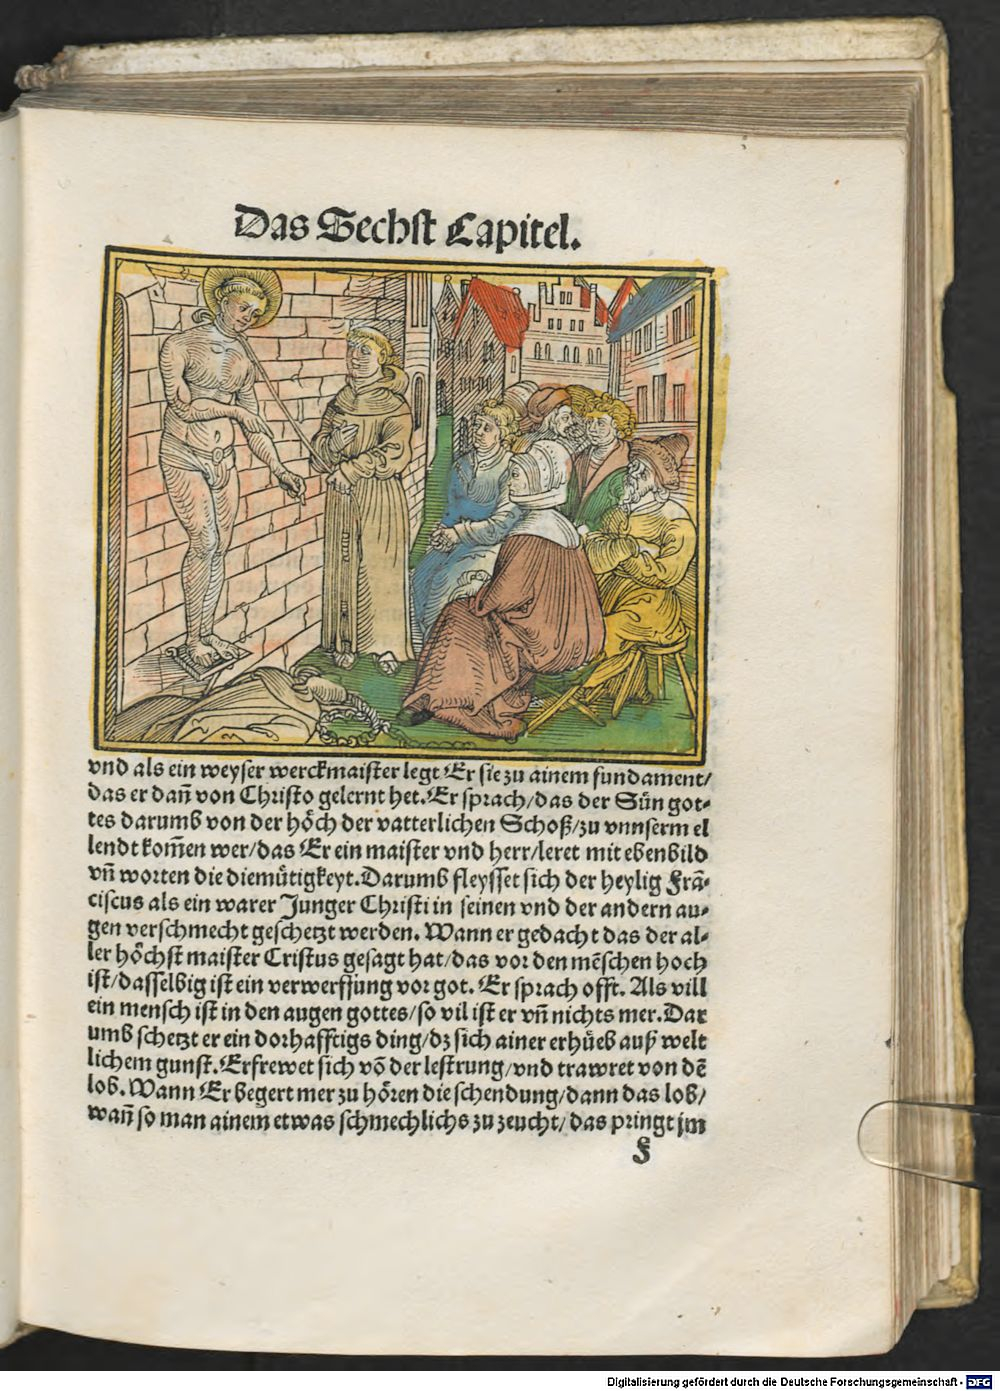 Das Sechst Capitel.
vnd als ein weyser werckmaister legt Er sie zu ainem fundament/
das er dañ von Christo gelernt het. Er sprach/das der Sün got-
tes darumb von der höch der vatterlichen Schoß/zu vnnserm el
lendt kom̄en wer/das Er ein maister vnd herr/leret mit ebenbild
vñ worten die diemütigkeyt. Darumb fleysset sich der heylig Frā-
ciscus als ein warer Junger Christi in seinen vnd der andern au-
gen verschmecht geschetzt werden. Wann er gedacht das der al-
ler höchst maister Cristus gesagt hat/das vor den mēschen hoch
ist/dasselbig ist ein verwerffung vor got. Er sprach offt. Als vill
ein mensch ist in den augen gottes/so vil ist er vñ nichts mer. Dar
umb schetzt er ein dorhafftigs ding/dz sich ainer erhüeb auß welt
lichem gunst. Erfrewet sich vō der lestrung/vnd trawret von dē
lob. Wann Er begert mer zu hören die schendung/dann das lob/
wañ so man ainem etwas schmechlichs zu zeucht/das pringt jm
F
Digitalisierung gefördert durch die Deutsche Forschungsgemeinschaft - DFG